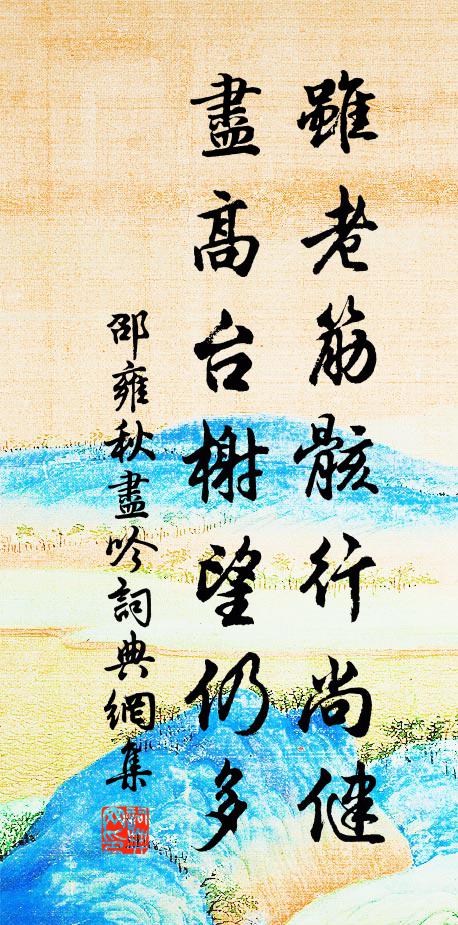 雖老筋骸行尚健
盡高台榭望仍多
邵雍秋盡吟詞典網集